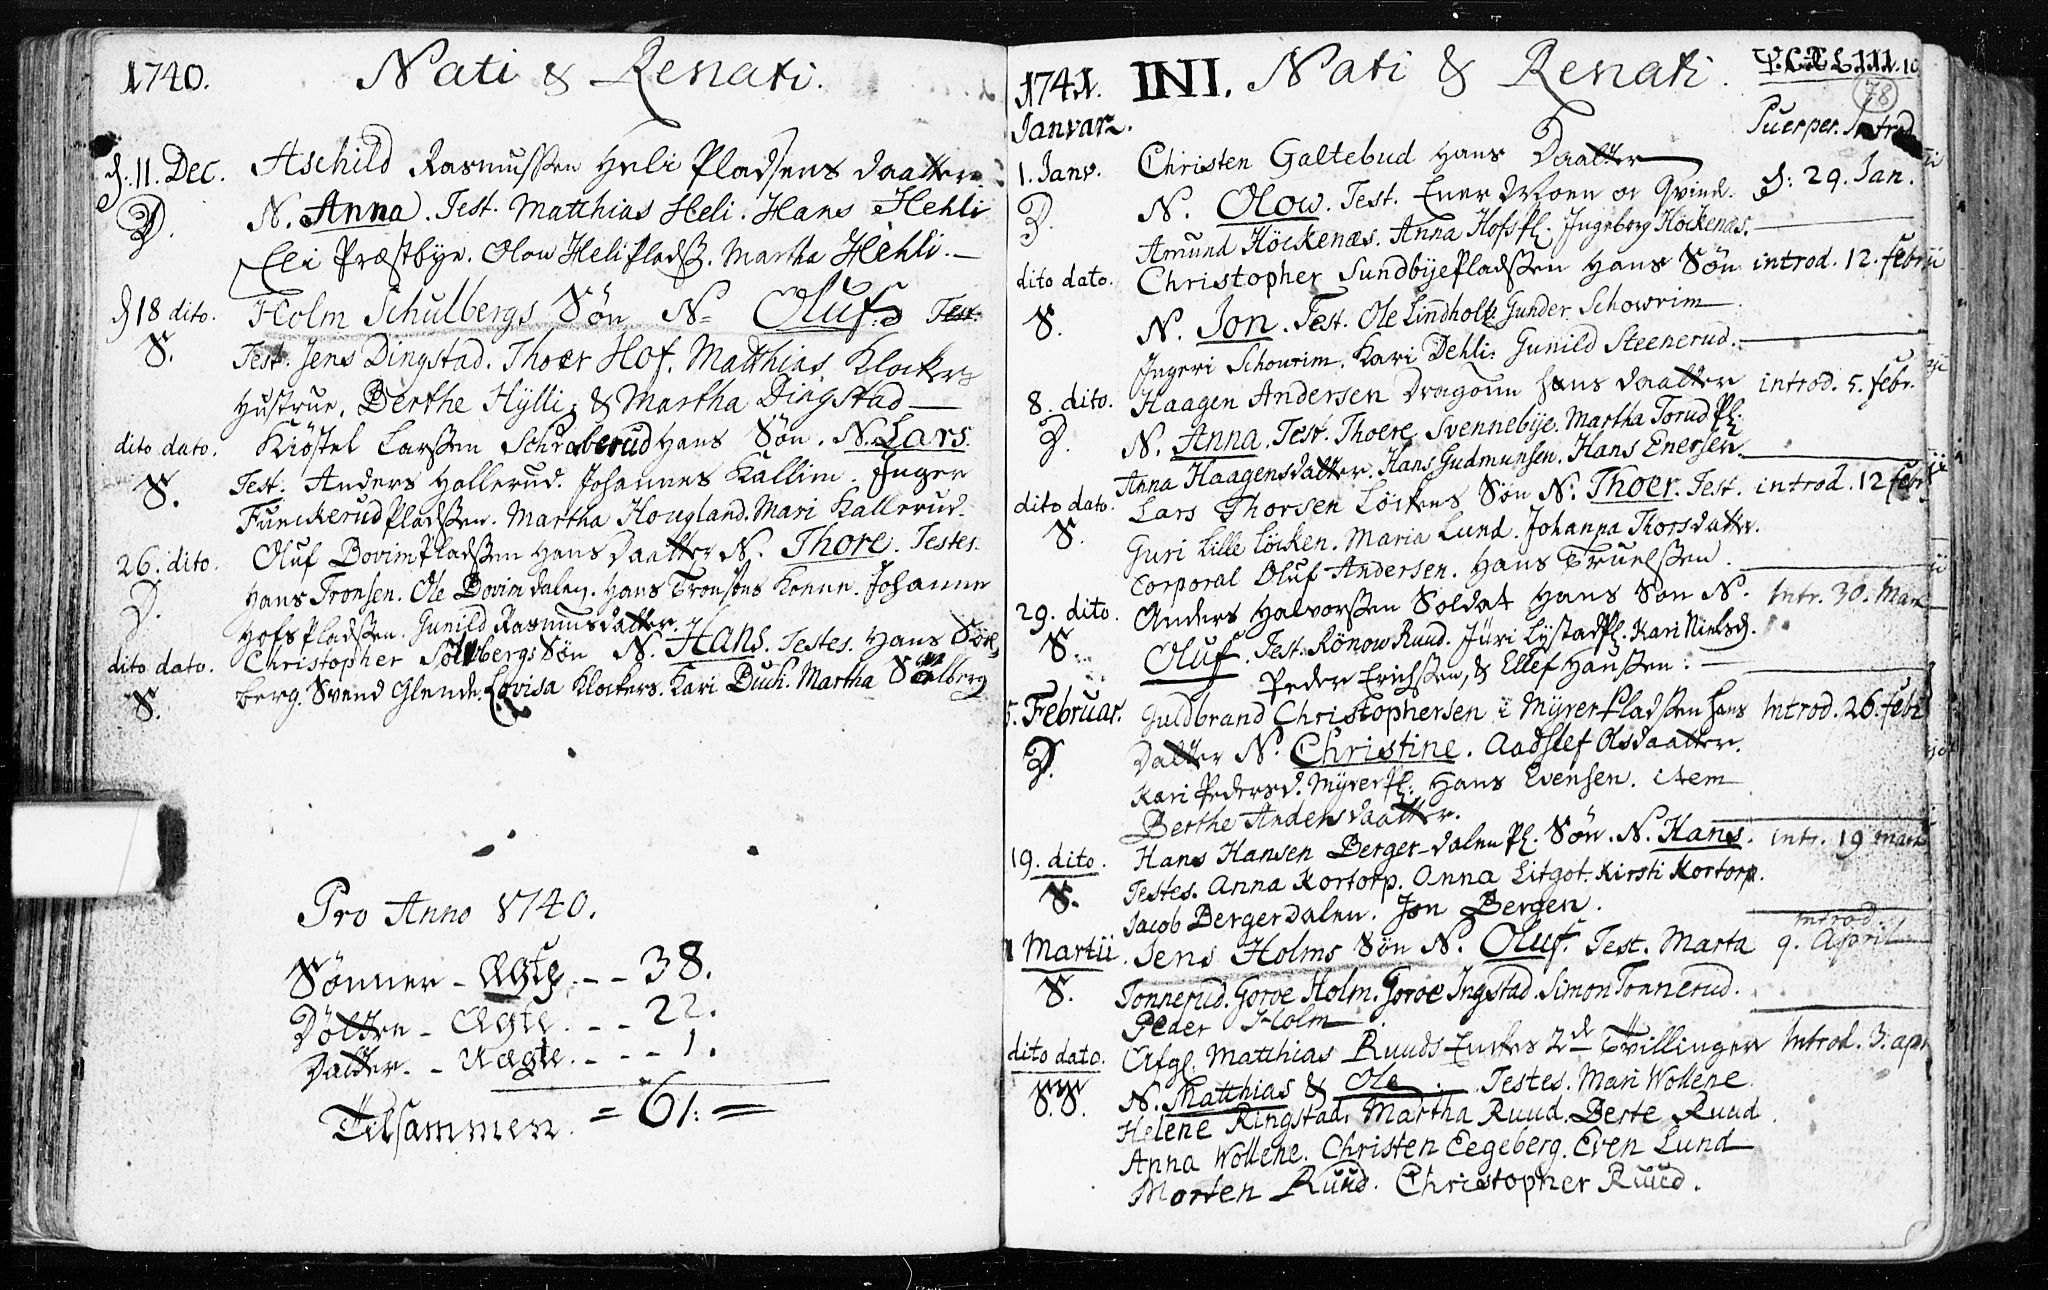 1740. Nati & Renati.
d. 11. Dec. Aschild Rasmusßen Heli Pladsens Daatter
D. N. Anna. Test. Matthias Heli. Hans Hehli
Eli Præstbye. Olow Heli Pladß. Martha Hehli.
d 18 dito. Holm Schulbergs Søn N. Oluf. Test.
S. Test. Jens Dingstad. Thoer Hof. Matthias Klockers
Hustrue. Berthe Hylli & Martha Dingstad
dito dato. Kiøstel Larßen Schraberud Hans Søn. N. Lars
S. Test. Anders Hallerud. Johannes Kallim. Inger
Funckerud Pladßen. Martha Hougland. Mari Kallerud.
26. dito. Oluf Bovim Pladßen Hans Daatter N. Thore. Testes.
D. Hans Tronsen. Ole Bovim dalen. Hans Tronsens Konne. Johanne
Hofs Pladßen. Gunild Rasmusdatter.
dito dato. Christopher Solbergs Søn N. Hans. Testes. Hans Søl
S. berg. Svend Glende. Lovisa Klockers. Kari Duch. Martha Sølberg
Pro Anno 1740.
Sønner - Ægte - - 38.
Døttre - Ægte - - 22.
Datter - Uægte - - - 1.
Tilsammen = 61. =
1741. INI. Nati & Renati.
78
Januar. Puerper. Introd
1. Janv. Christen Galtebud Hans Daatter
D. N. Olow. Test. Ener Moen og Qvinde. d: 29. Jan.
Amund Höckenæs. Anna Hofs Pl. Ingeborg Hockenæs.
dito dato. Christopher Sundbye Pladßen Hans Søn introd. 12. Febr
S. N. Jon. Test. Ole Lindholt Gunder Schowrim
Ingeri Schowrim. Kari Dehli. Gunild Steenerud.
8. dito. Haagen Andersen Dragoun hans daatter introd. 5. Febr.
D. N. Anna. Test. Thoere Svennebye. Martha Torud Pl.
Anna Haagensdatter. Hans Gudmunsen. Hans Enersen.
dito dato. Lars Thorsen Löckens Søn N. Thoer. Test. introd. 12 Febr
S. Guri Lille Löcken. Maria Lund. Johanna Thorsdatter.
Corporal Oluf Andersen. Hans Truelßen.
29. dito. Anders Halvorßen Soldat Hans Søn N. Intr. 30. Mar
S. Oluf. Test. Rönow Ruud. Jüri Lystad Pl. Kari Nielsd.
Peder Erichßen, & Ellef Hanßen.
5. Februar. Guldbrand Christophersen i Myrer Pladßen hans Introd. 26. Febr
D. Datter N. Christine. Aadslef Olsdaatter.
Kari Pedersd. Myrer Pl. Hans Evensen. item
Berthe Andersdaatter.
19. dito. Hans Hansen Berger-dalen Pl. Søn. N. Hans. intr. 19 Marti
S. Testes. Anna Kortorp. Anna Litgot. Kirsti Kortorp.
Jacob Bergerdalen. Jon Bergen.
1 Martii. Jens Holms Søn N. Oluf. Test. Marta Introd. 9. April
S. Tonnerud. Gorve Holm. Goroe Ingstad. Simon Tonnerud.
Peder Holm
dito dato. Afg. Matthias Ruuds Enckes 2de Tvillinger Introd. 3. apr
S.S. N. Matthias & Ole. Testes. Mari Wollene
Helene Ringstad. Martha Ruud. Berte Ruud
Anna Wollene. Christen Eegeberg. Even Lund
Morten Ruud. Christopher Ruud.